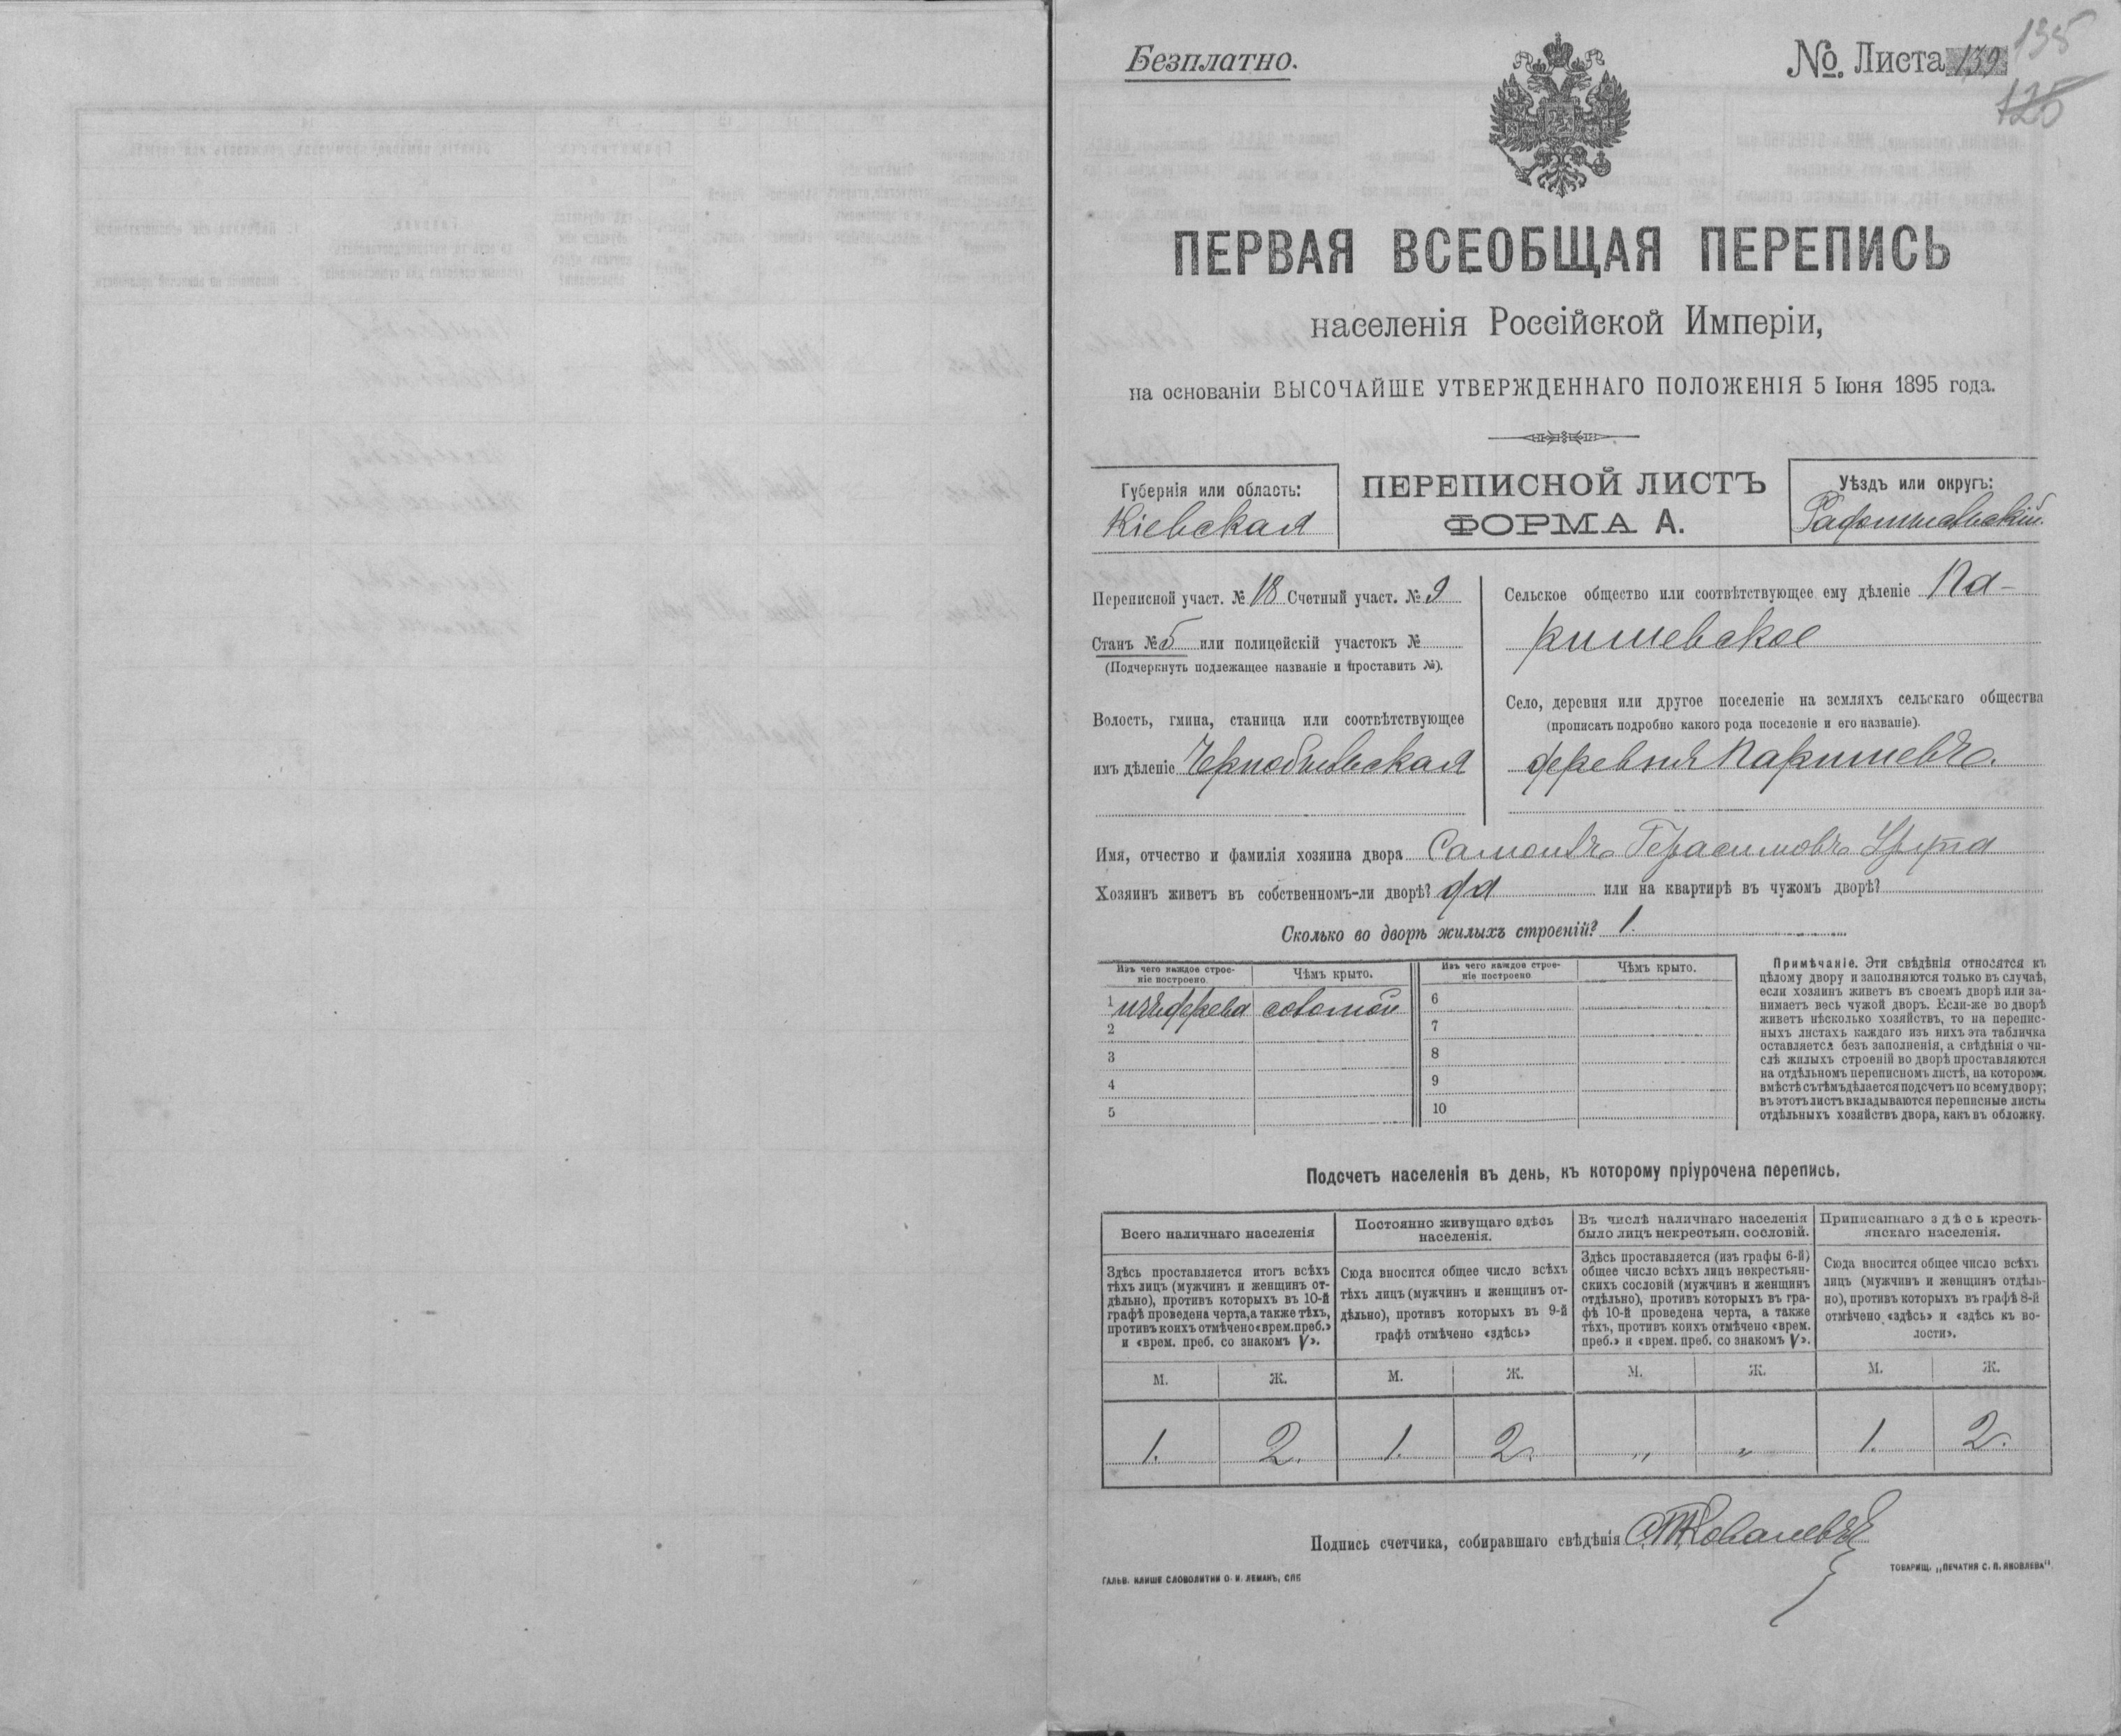 Безплатно.
№. Листа 139
135
125
ПЕРВАЯ ВСЕОБЩАЯ ПЕРЕПИСЬ
населенія Россійской Имперіи,
на основаніи ВЫСОЧАЙШЕ УТВЕРЖДЕННАГО ПОЛОЖЕНІЯ 5 Іюня 1895 года.
Губернія или область:
Кіевская
ПЕРЕПИСНОЙ ЛИСТЪ
ФОРМА А.
Уѣздъ или округъ:
Радомысльскій.
Переписной участ. № 18 Счетный участ. № 9
Станъ № 5 или полицейскій участокъ №
(Подчеркнуть подлежащее названіе и проставить №).
Волость, гмина, станица или соотвѣтствующее
имъ дѣленіе Чернобыльская
Сельское общество или соотвѣтствующее ему дѣленіе Па-
ришевское
Село, деревня или другое поселеніе на земляхъ сельскаго общества
(прописать подробно какого рода поселеніе и его названіе).
деревня Паришевъ.
Имя, отчество и фамилія хозяина двора Герасимовъ
Хозяинъ живетъ въ собственномъ-ли дворѣ? да или на квартирѣ въ чужомъ дворѣ?
Сколько во дворѣ жилыхъ строеній? 1.
Изъ чего каждое строе-
ніе построено.
Чѣмъ крыто.
1 изъ дерева соломой
2
3
4
5
Изъ чего каждое строе-
ніе построено
Чѣмъ крыто.
6
7
8
9
10
Примѣчаніе. Эти свѣдѣнія относятся къ
цѣлому двору и заполняются только въ случаѣ,
если хозяинъ живетъ въ своемъ дворѣ или за-
нимаетъ весь чужой дворъ. Если-же во дворѣ
живетъ нѣсколько хозяйствъ, то на перепис-
ныхъ листахъ каждаго изъ нихъ эта табличка
оставляется безъ заполненія, а свѣдѣнія о чи-
слѣ жилыхъ строеній во дворѣ проставляются
на отдѣльномъ переписномъ листѣ, на которомъ
вмѣстѣ съ тѣмъ дѣлается подсчетъ по всему двору;
въ этотъ листъ вкладываются переписные листы
отдѣльныхъ хозяйствъ двора, какъ въ обложку.
Подсчетъ населенія въ день, къ которому пріурочена перепись.
Всего наличнаго населенія
Здѣсь проставляется итогъ всѣхъ
тѣхъ лицъ (мужчинъ и женщинъ от-
дѣльно), противъ которыхъ въ 10-й
графѣ проведена черта, а также тѣхъ,
противъ коихъ отмѣчено «врем. преб.»
и «врем. преб. со знакомъ V».
Постоянно живущаго здѣсь
населенія.
Сюда вносится общее число всѣхъ
тѣхъ лицъ (мужчинъ и женщинъ от-
дѣльно), противъ которыхъ въ 9-й
графѣ отмѣчено «здѣсь»
Въ числѣ наличнаго населенія
было лицъ некрестьян. сословій.
Здѣсь проставляется (изъ графы 6-й)
общее число всѣхъ лицъ некрестьян-
скихъ сословій (мужчинъ и женщинъ
отдѣльно), противъ которыхъ въ гра-
фѣ 10-й проведена черта, а также
тѣхъ, противъ коихъ отмѣчено «врем.
преб.» и «врем. преб. со знакомъ V».
Приписаннаго здѣсь кресть-
янскаго населенія.
Сюда вносится общее число всѣхъ
лицъ (мужчинъ и женщинъ отдѣль-
но), противъ которыхъ въ графѣ 8-й
отмѣчено «здѣсь» и «здѣсь къ во-
лости».
М. Ж. М. Ж. М. Ж. М. Ж.
1. 2. 1. 2. „ „ 1. 2.
Подпись счетчика, собиравшаго свѣдѣнія
ГАЛЬВ. КЛИШЕ СЛОВОЛИТНИ О. И. ЛЕМАНЪ, СПБ
ТОВАРИЩ. „ПЕЧАТНЯ С. П. ЯКОВЛЕВА".